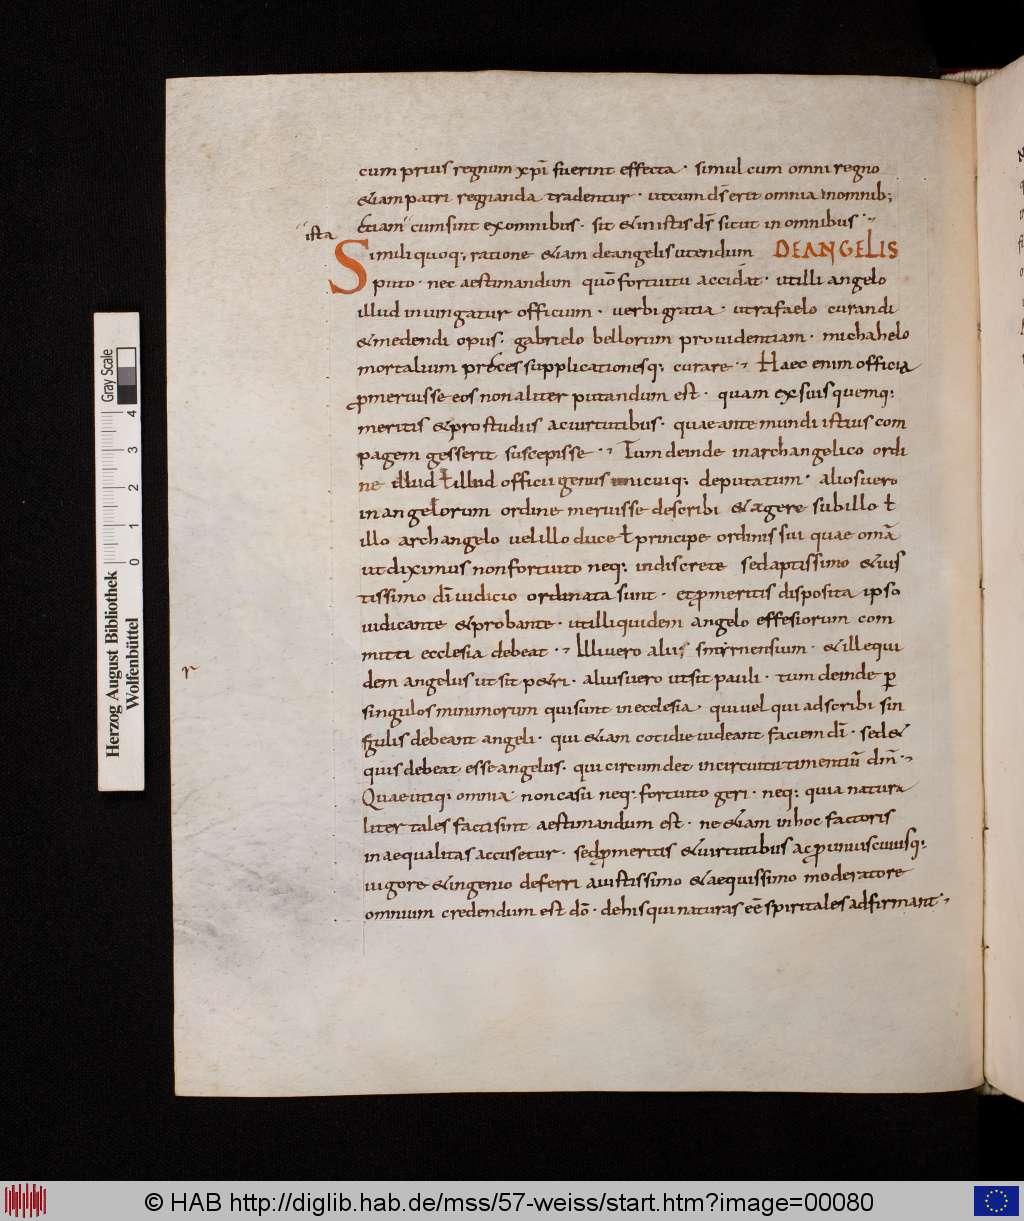 cum prius regnum xp̄i fuerint effecta · simul cum omni regno
&iam patri regnanda tradentur · ut cum d̄s erit omnia in omnib;
Etiam cum sint ex omnibus · sit & in istis d̄s sicut in omnibus
ista
Simili quoq; ratione &iam de angelis utendum DE ANGELIS
puto · nec aestimandum quō fortuitu accidat · ut illi angelo
illud iniungatur officium · verbi gratia · ut rafaelo curandi
& medendi opus · gabrielo bellorum providentiam · michahelo
mortalium preces supplicationesq; curare · Haec enim officia
ꝓmeruisse eos non aliter putandum est · quam ex suis quemq;
meritis & pro studiis ac virtutibus · quae ante mundi istius com
pagem gesserit suscepisse · Tum deinde in archangelico ordi
ne illud ł illud officii genus unicuiq; deputatum · alios uero
in angelorum ordine meruisse describi & agere sub illo ł
illo archangelo uel illo duce ł principe ordinis sui quae omā
ut diximus non fortuito neq; indiscrete sed aptissimo & ius
tissimo dī iudicio ordinata sunt · et ꝓ meritis disposita ipso
iudicante & probante · ut illi quidem angelo effesiorum com
mitti ecclesia debeat · Illi uero alii smyrnensium · & ille qui
dem angelus ut sit p&ri · alius uero ut sit pauli · tum deinde ꝑ
r
singulos minimorum qui sunt in ecclesia · qui uel qui adscribi sin
gulis debeant angeli · qui &iam cotidie uideant faciem dī · sed &
quis debeat esse angelus · qui circumdet in circuitu timentiū dm̄ ·
Quae utiq; omnia · non casu neq; fortuito geri · neq; quia natura
liter tales facti sint aestimandum est · ne &iam in hoc factoris
inaequalitas accusetur · sed ꝓ meritis & uirtutibus ac ꝓ uniuscuiusq;
uigore & ingenio deferri a iustissimo & aequissimo moderatore
omnium credendum est dō · de his qui naturas eē spiritales adfirmant ·
Gray Scale
0 1 2 3 4
Herzog August Bibliothek
Wolfenbüttel
© HAB http://diglib.hab.de/mss/57-weiss/start.htm?image=00080